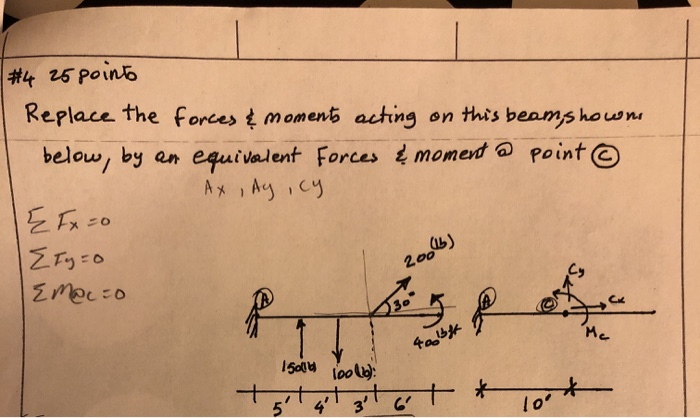 #4 25 points
Replace the forces & moments acting on this beam, shown
below, by an equivalent Forces & moment @ point C
Ax, Ay, Cy
ΣFx=0
ΣFy=0
ΣM@C=0
200 (lb)
30°
A
400 lb ft
150(lb)
100(lb)
5' 4' 3' 6'
Cy
A
C
Cx
Mc
10'